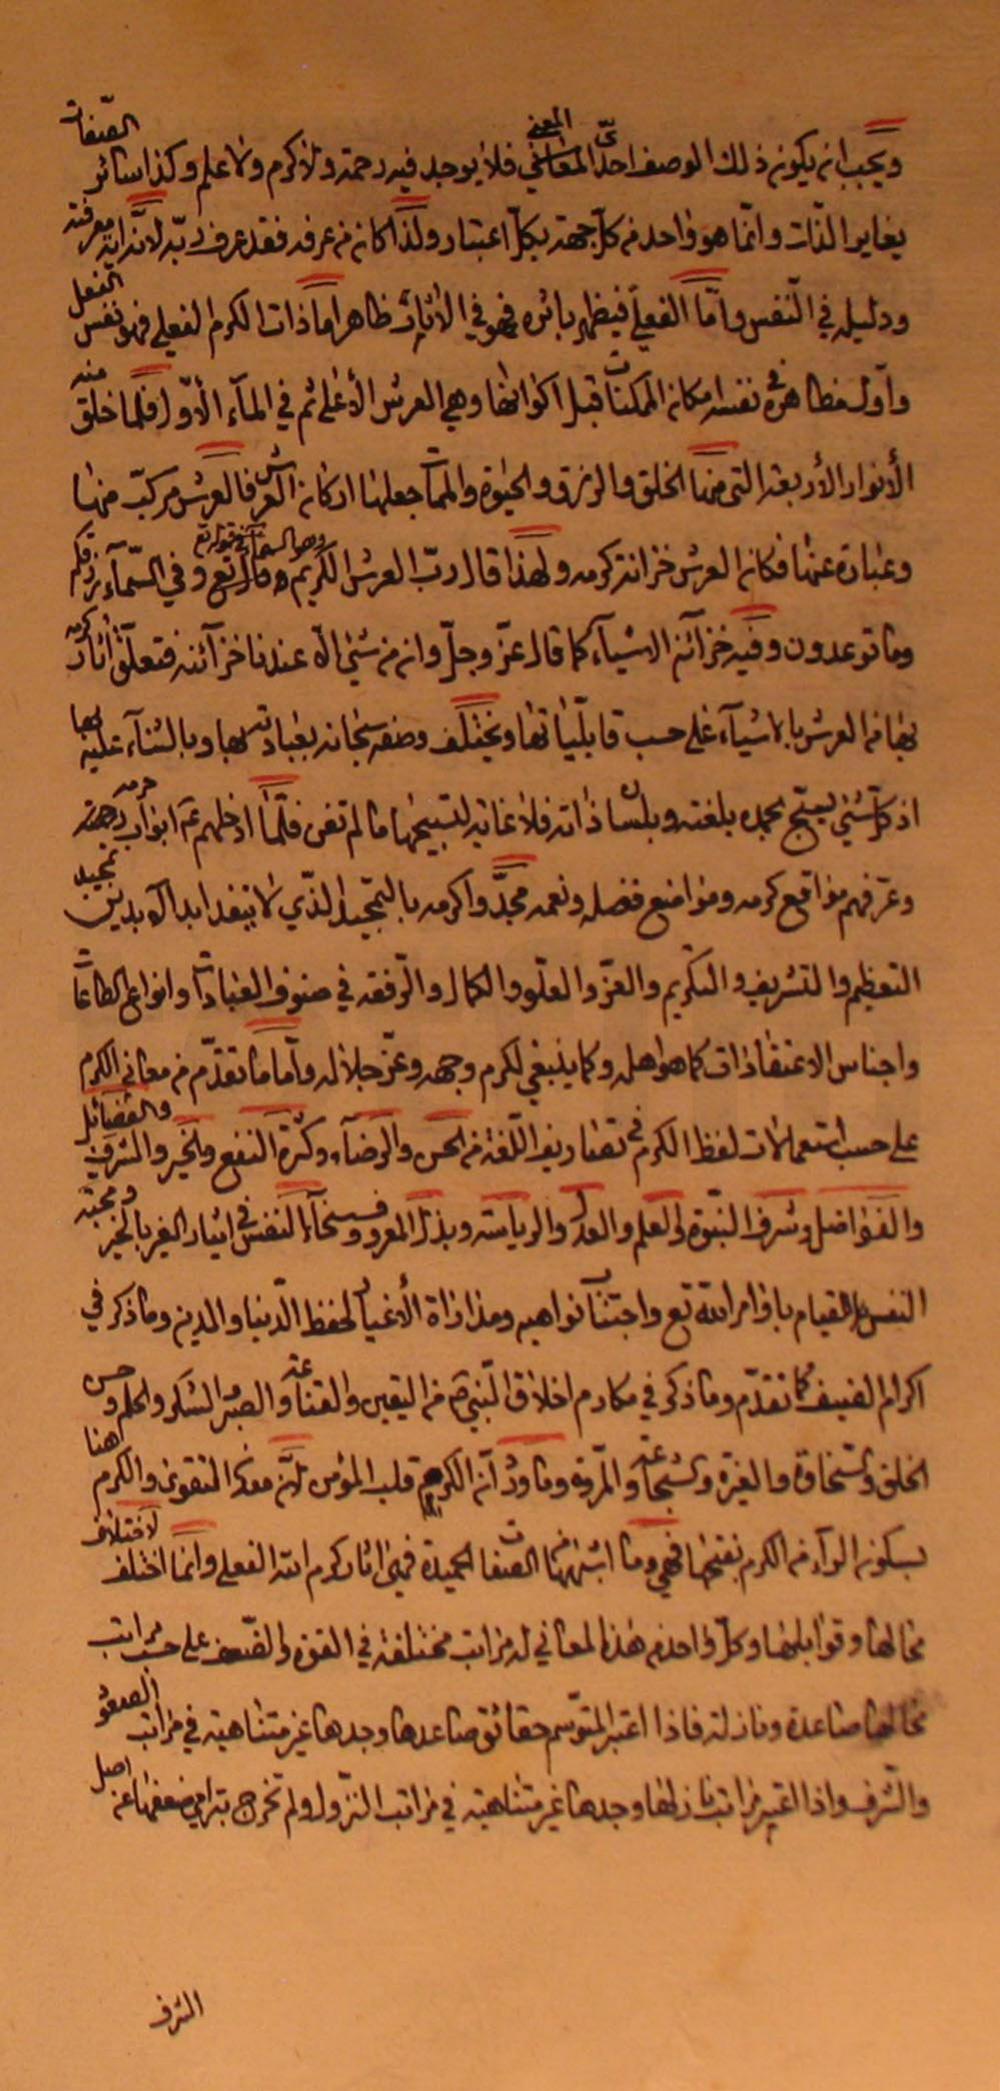 ويجب ان يكون ذلك الوصف احدّيّ المعنى فلا يوجد فيه رحمة ولا كرم ولا علم وكذا سائر الصّفات
يغاير الذّات وانّما هو واحد من كلّ جهة بكلّ اعتبار ولذا كان من عرفه فقد عرف ربّه لانّه اية معرفته
ودليله في النّفس وامّا الفعليّ فيظهر باثره فهو في الاثار ظاهر امّا ذات الكرم الفعلي فهو نفس الفعل
واوّل مظاهره في نفسه امكان الممكنات قبل اكوانها وهي العرش الأعلى ثم في المآء الأوّل فلمّا خلق منه
الأنوار الأربعة التي منها الخلق والرزق والحيٰوة والممات جعلها اركان العرش فالعرش مركّب منها
وعبارة عنها فكان العرش خزانة كرمه ولهذا قال ربّ العرش الكريم وهو السمآء في قوله تع وفي السّمآء رزقكم
وما توعدون وفيه خزآئن الاشيآء كما قال عزّ وجلّ وان من شيء الّا عندنا خزآئنه فتعلّق اثار كرمه
بها من العرش بالاشيآء على حسب قابليّاتها ويختلف وصفه سبحانه بعبادته لها وبالثنآء عليه بها
اذ كلّ شيء يسبّح بحمده بلغته وبلسان ذاته فلا غاية لتسبيحها ما لم تفن فلمّا ادخلهم عم ابواب رحمته
وعرّفهم مواقع كرمه ومواضع فضله ونعمه مجدّوا كرمه بالتمجيد الذّي لا ينفد ابد الابدين تمجيد
التعظيم والتشريف والتكريم والعزّ والعلّو والكمال والرّفعة في صنوف العبادات وانواع الطاعات
واجناس الاعتقادات كما هو اهله وكما ينبغي لكرم وجهه وعزّ جلاله وأمّا ما تقدّم من معاني الكرم
على حسب استعمالات لفظ الكرم في تصاريف اللّغة من الحسن والرضآء وكثرة النفع والخير والشرف والفضآئل
والفواضل وشرف النبّوة والعلم والعدل والرياسة وبذل المعروف وسخآء النفس في ايثار الغير بالخير ومحبّة
النفس للقيام باوامر الله تع واجتناب نواهيه ومداراة الأغيار لحفظ الدّنيا والدين وما ذكر في
اكرام الضيف كما تقدّم وما ذكر في مكارم اخلاق النّبي ص من اليقين والقناعة والصبر والشكر والحلم وحسن
الخلق والسّخاوة والغيرة والشجاعة والمرّوة وما ورد أنّ الكرم قلب المؤمن لانّه معدن التقوى والكرم هنا
بسكون الرآء من الكرم بفتحها فهي وما اشبهها من الصّفات الحميدة فهي اثار كرم الله الفعلي وانّما اختلف لاختلاف
محالها وقوابلها وكلّ واحد من هذه المعاني له مراتب مختلفة في القوّة والضّعف على حسب مراتب
محالها صاعدة ونازلة فاذا اعتبر المتوّسم حقائق صاعدها وجدها غير متناهية في مراتب الصعود
والشّرف واذا اعتبر مراتب نازلها وجدها غير متناهية في مراتب النزول ولم تخرج بترامي ضعفها عن اصل
الشرف